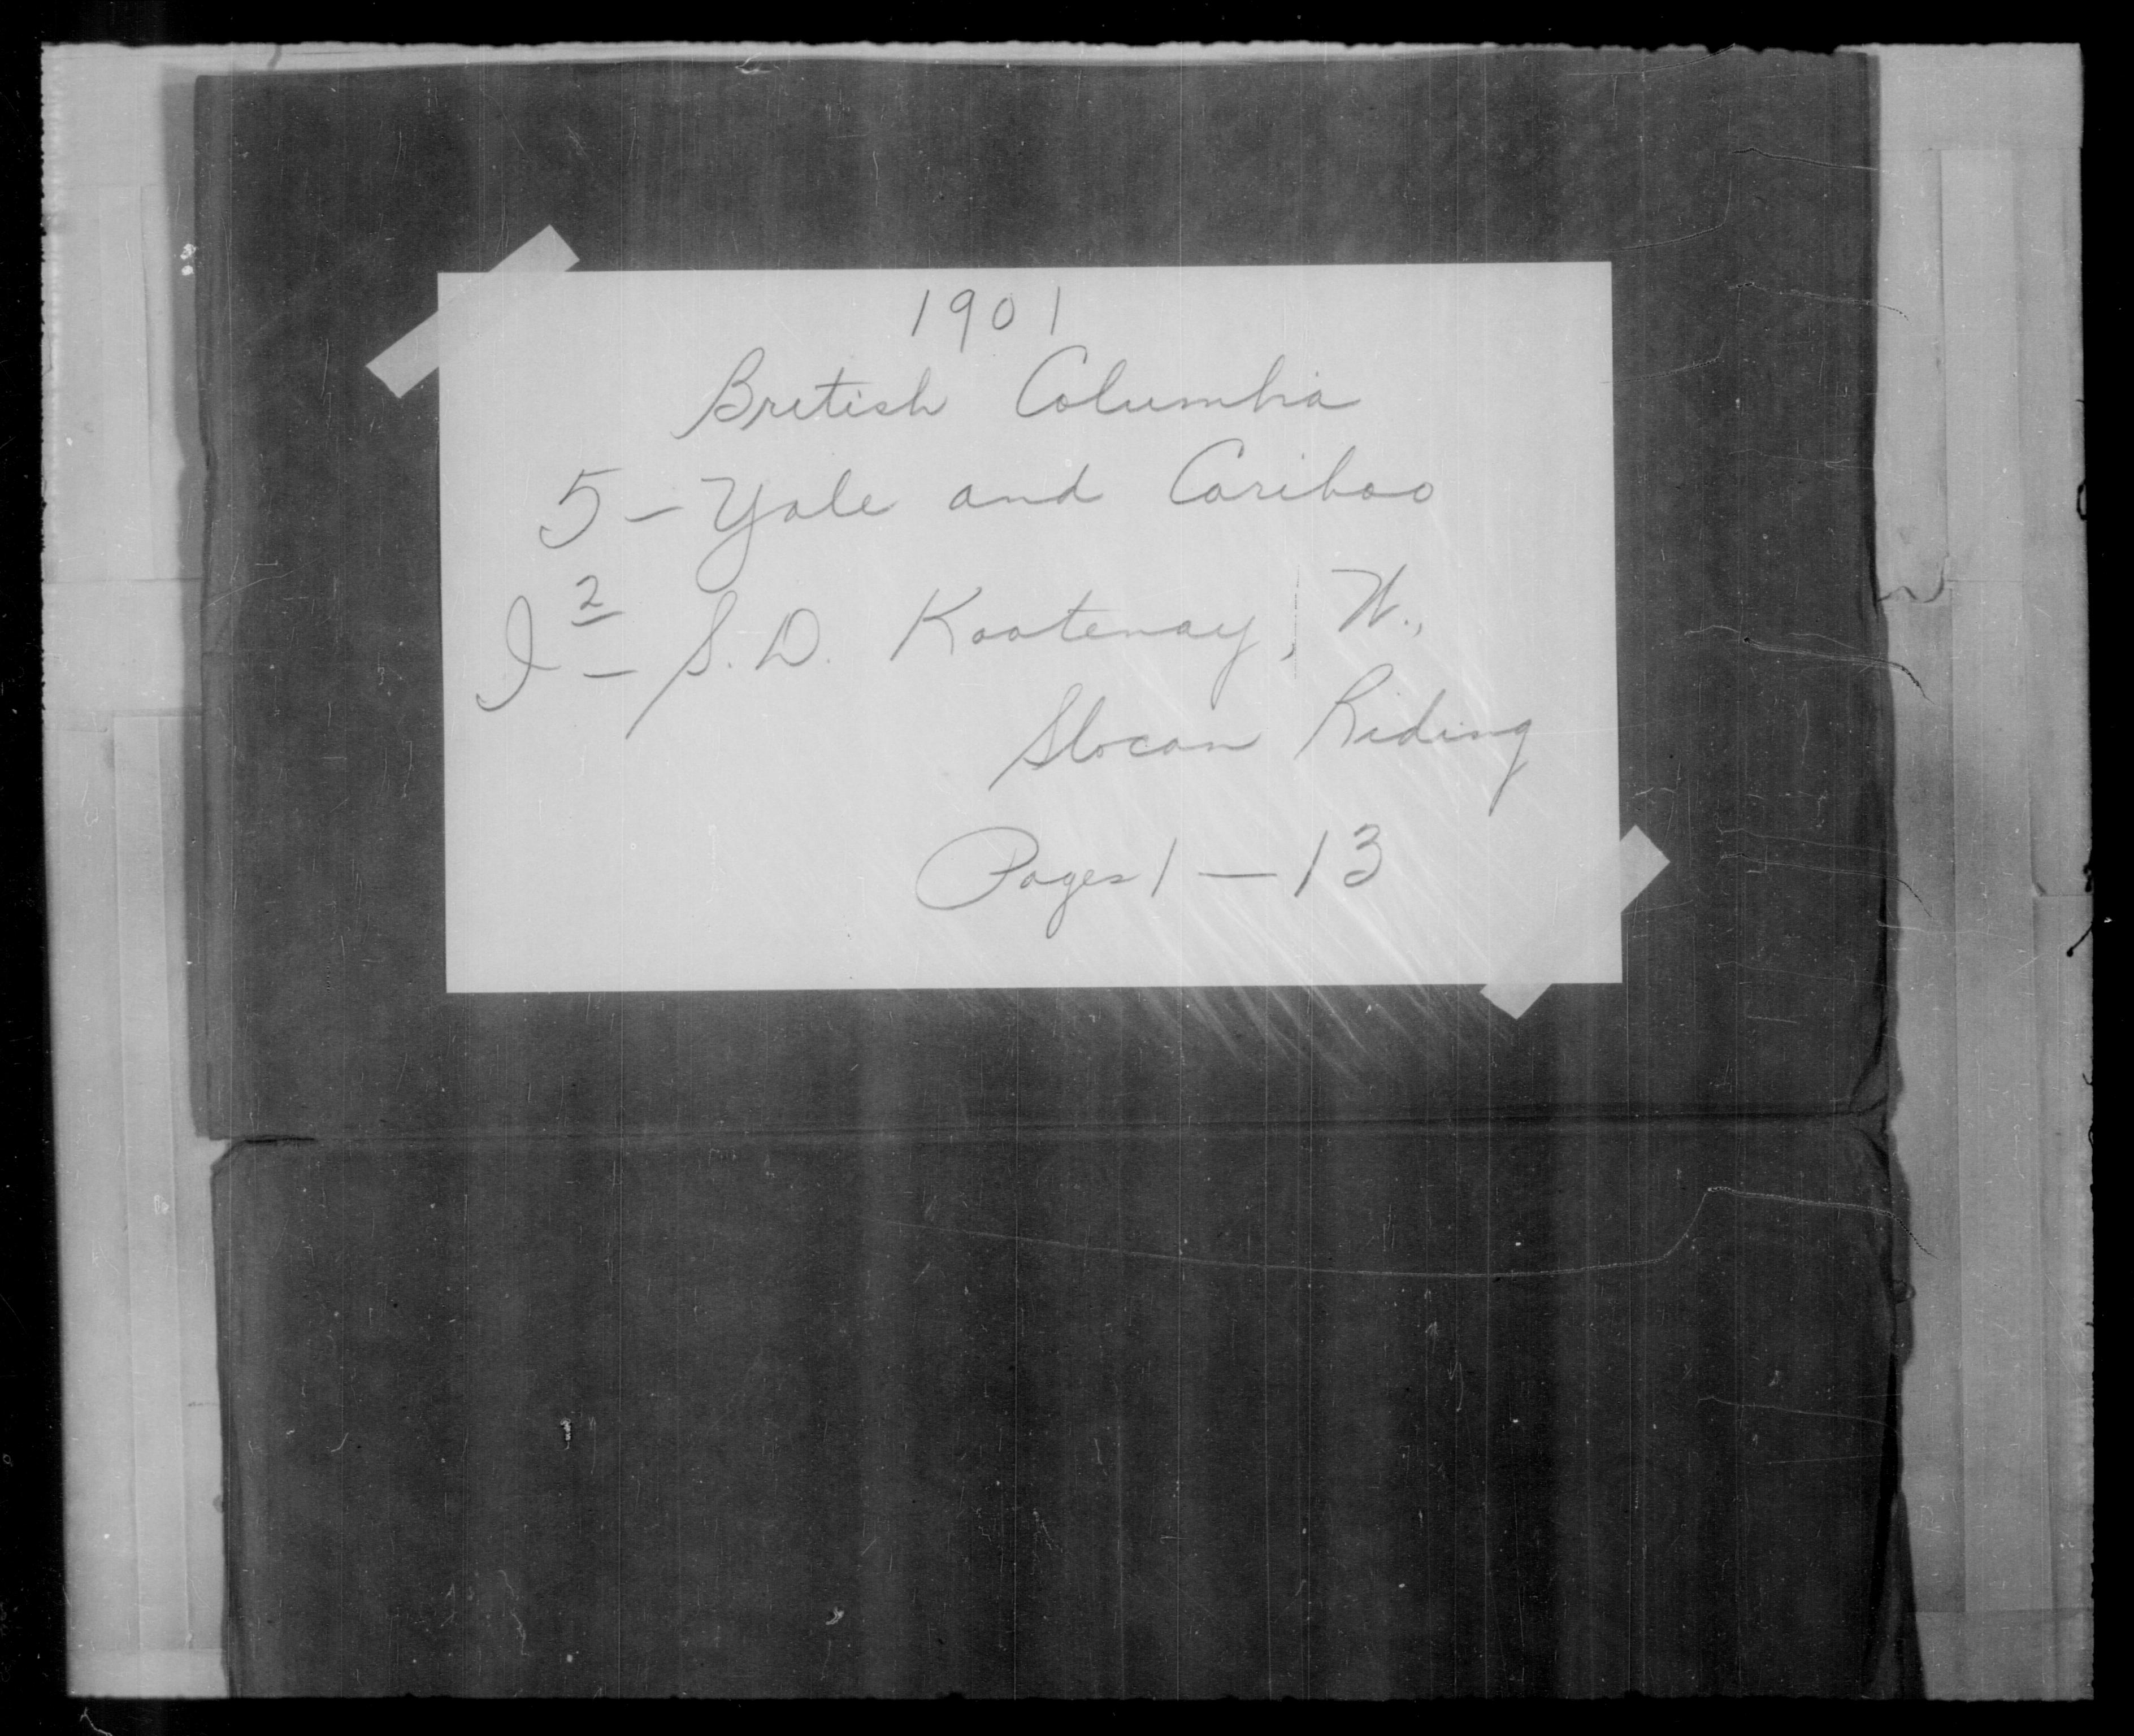 1901
British Columbia
5 - Yale and Cariboo
I 2 - S.D. Kootenay, W.,
Slocan Riding
Pages 1 — 13